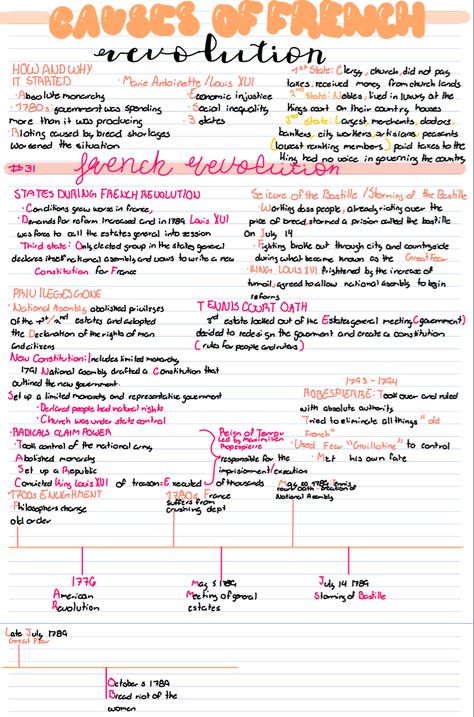 CAUSES OF FRENCH
revolution
HOW AND WHY
IT STARTED
· Absolute monarchy
· 1780s: government was spending
more than it was producing
· Rioting caused by bread shortages
worsened the situation
· Marie Antoinette/Louis XVI
· Economic injustice
· Social inequality
· 3 states
1st State: Clergy, church, did not pay
taxes, received money from church lands
2nd State: Nobles, lived in luxury at the
kings court on their country houses
3rd state: Largest, merchants, doctors,
bankers, city workers, artisians, peasants
(lowest ranking members) paid taxes to the
king had no voice in governing the country
#31
french revolution
STATES DURING FRENCH REVOLUTION
· Conditions grew worse in france,
· Demands for reform increased and in 1789 Louis XVI
was force to call the estates general into session
· Third state: Only elected group in the states general
declares itself national assembly and vows to write a new
Constitution for France
Seizure of the Bastille /Storming of the Bastille
· Working class people, already rioting over the
price of bread, stormed a prision called the bastille
on July 14
· Fighting broke out through city and countryside
during what became known as the Great Fear
· KING LOUIS XVI frightened by the increase of
turmoil, agreed to allow national assembly to begin
reforms
PRIVILEGES GONE
· National Assembly abolished privileges
of the 1st/2nd estates and adopted
the Declaration of the rights of man
and citizens
TENNIS COURT OATH
3rd estate locked out of the Estates general meeting (government)
decided to redesign the goverment and create a constitution
(rules for people and rulers)
New Constitution: Includes limited monarchy
1791 National assembly drafted a Constitution that
outlined the new government.
Set up a limited monarchy and representative government
· Declared people had natural rights
· Church was under state control
· RADICALS CLAIM POWER
Took control of the national army,
Abolished monarchy
Set up a Republic
Convicted King Louis XVI of treason: Executed
Reign of Terror
led by Maximilien
Robespierre
responsible for the
imprisionment/execution
of thousands
1793 - 1794
ROBESPIERRE: Took over and ruled
with absolute authority
Tried to eliminate all things "old
French"
· Used Fear "Guillotine" to control
· Met his own fate
1700s ENLIGHMENT
· Philosophers change
old order
1780s France
suffers from
crushing debt
May 20 1789 Tennis
court oath - creation of
National Assembly
1776
American
Revolution
May 5 1789
Meeting of general
estates
July 14 1789
Storming of Bastille
Late July 1789
Great Fear
October 5 1789
Bread riot of the
women